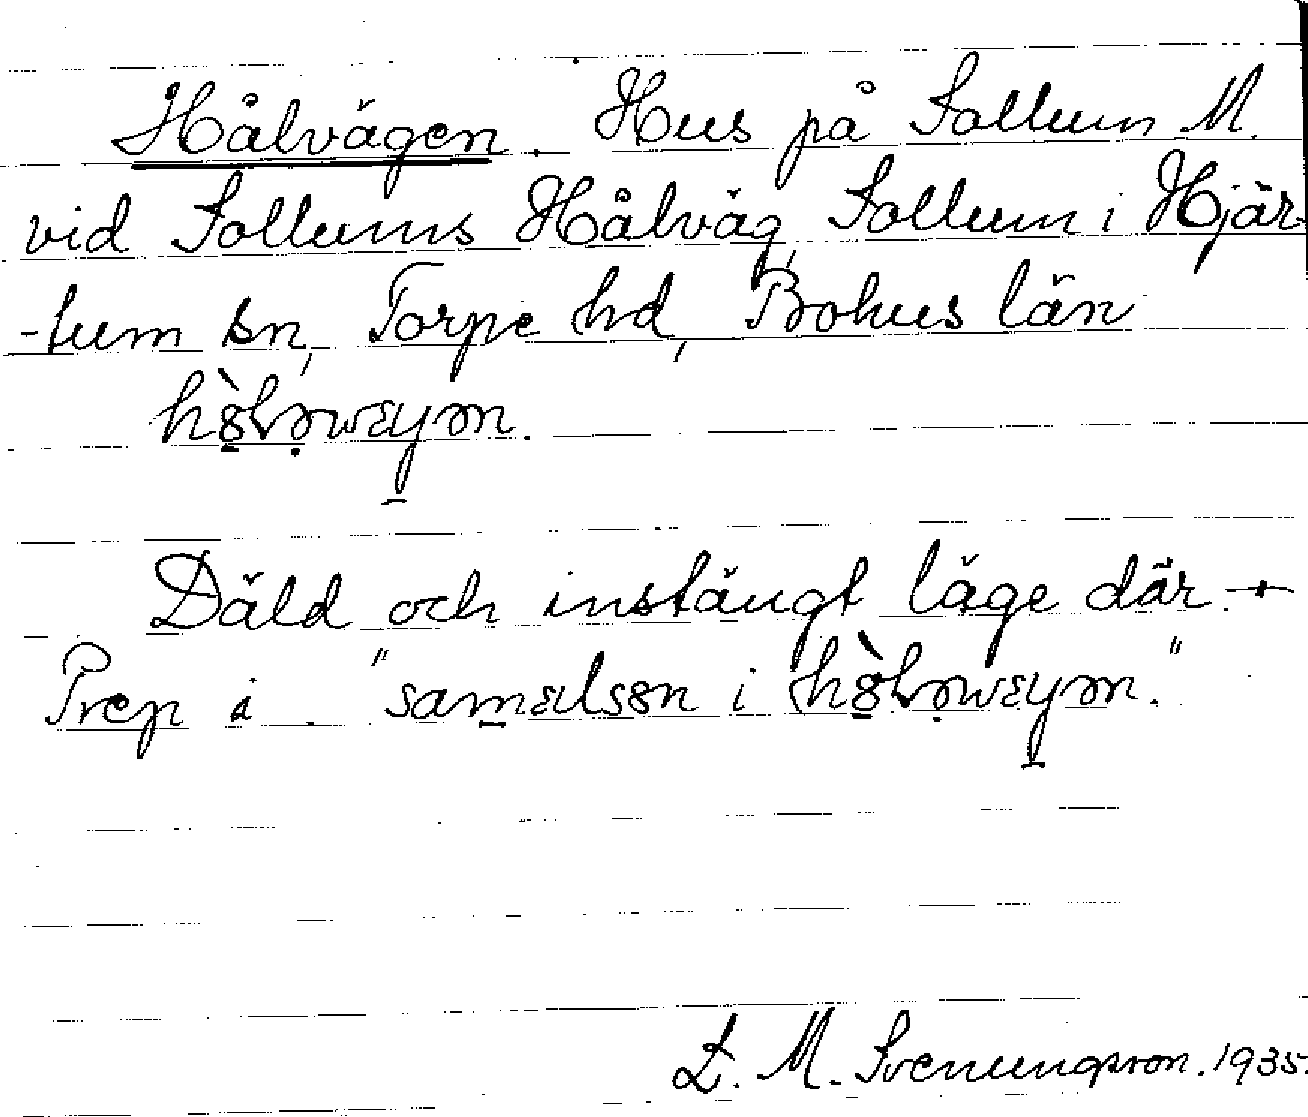 Hålvägen. Hus på Sollum M.
vid Sollums Hålväg, Sollum i Hjär-
-tum sn, Torpe hd, Bohus län
Däld och instängt läge där. +
Prep i "samɛlsɞn i
L. M. Svenungsson. 1935.